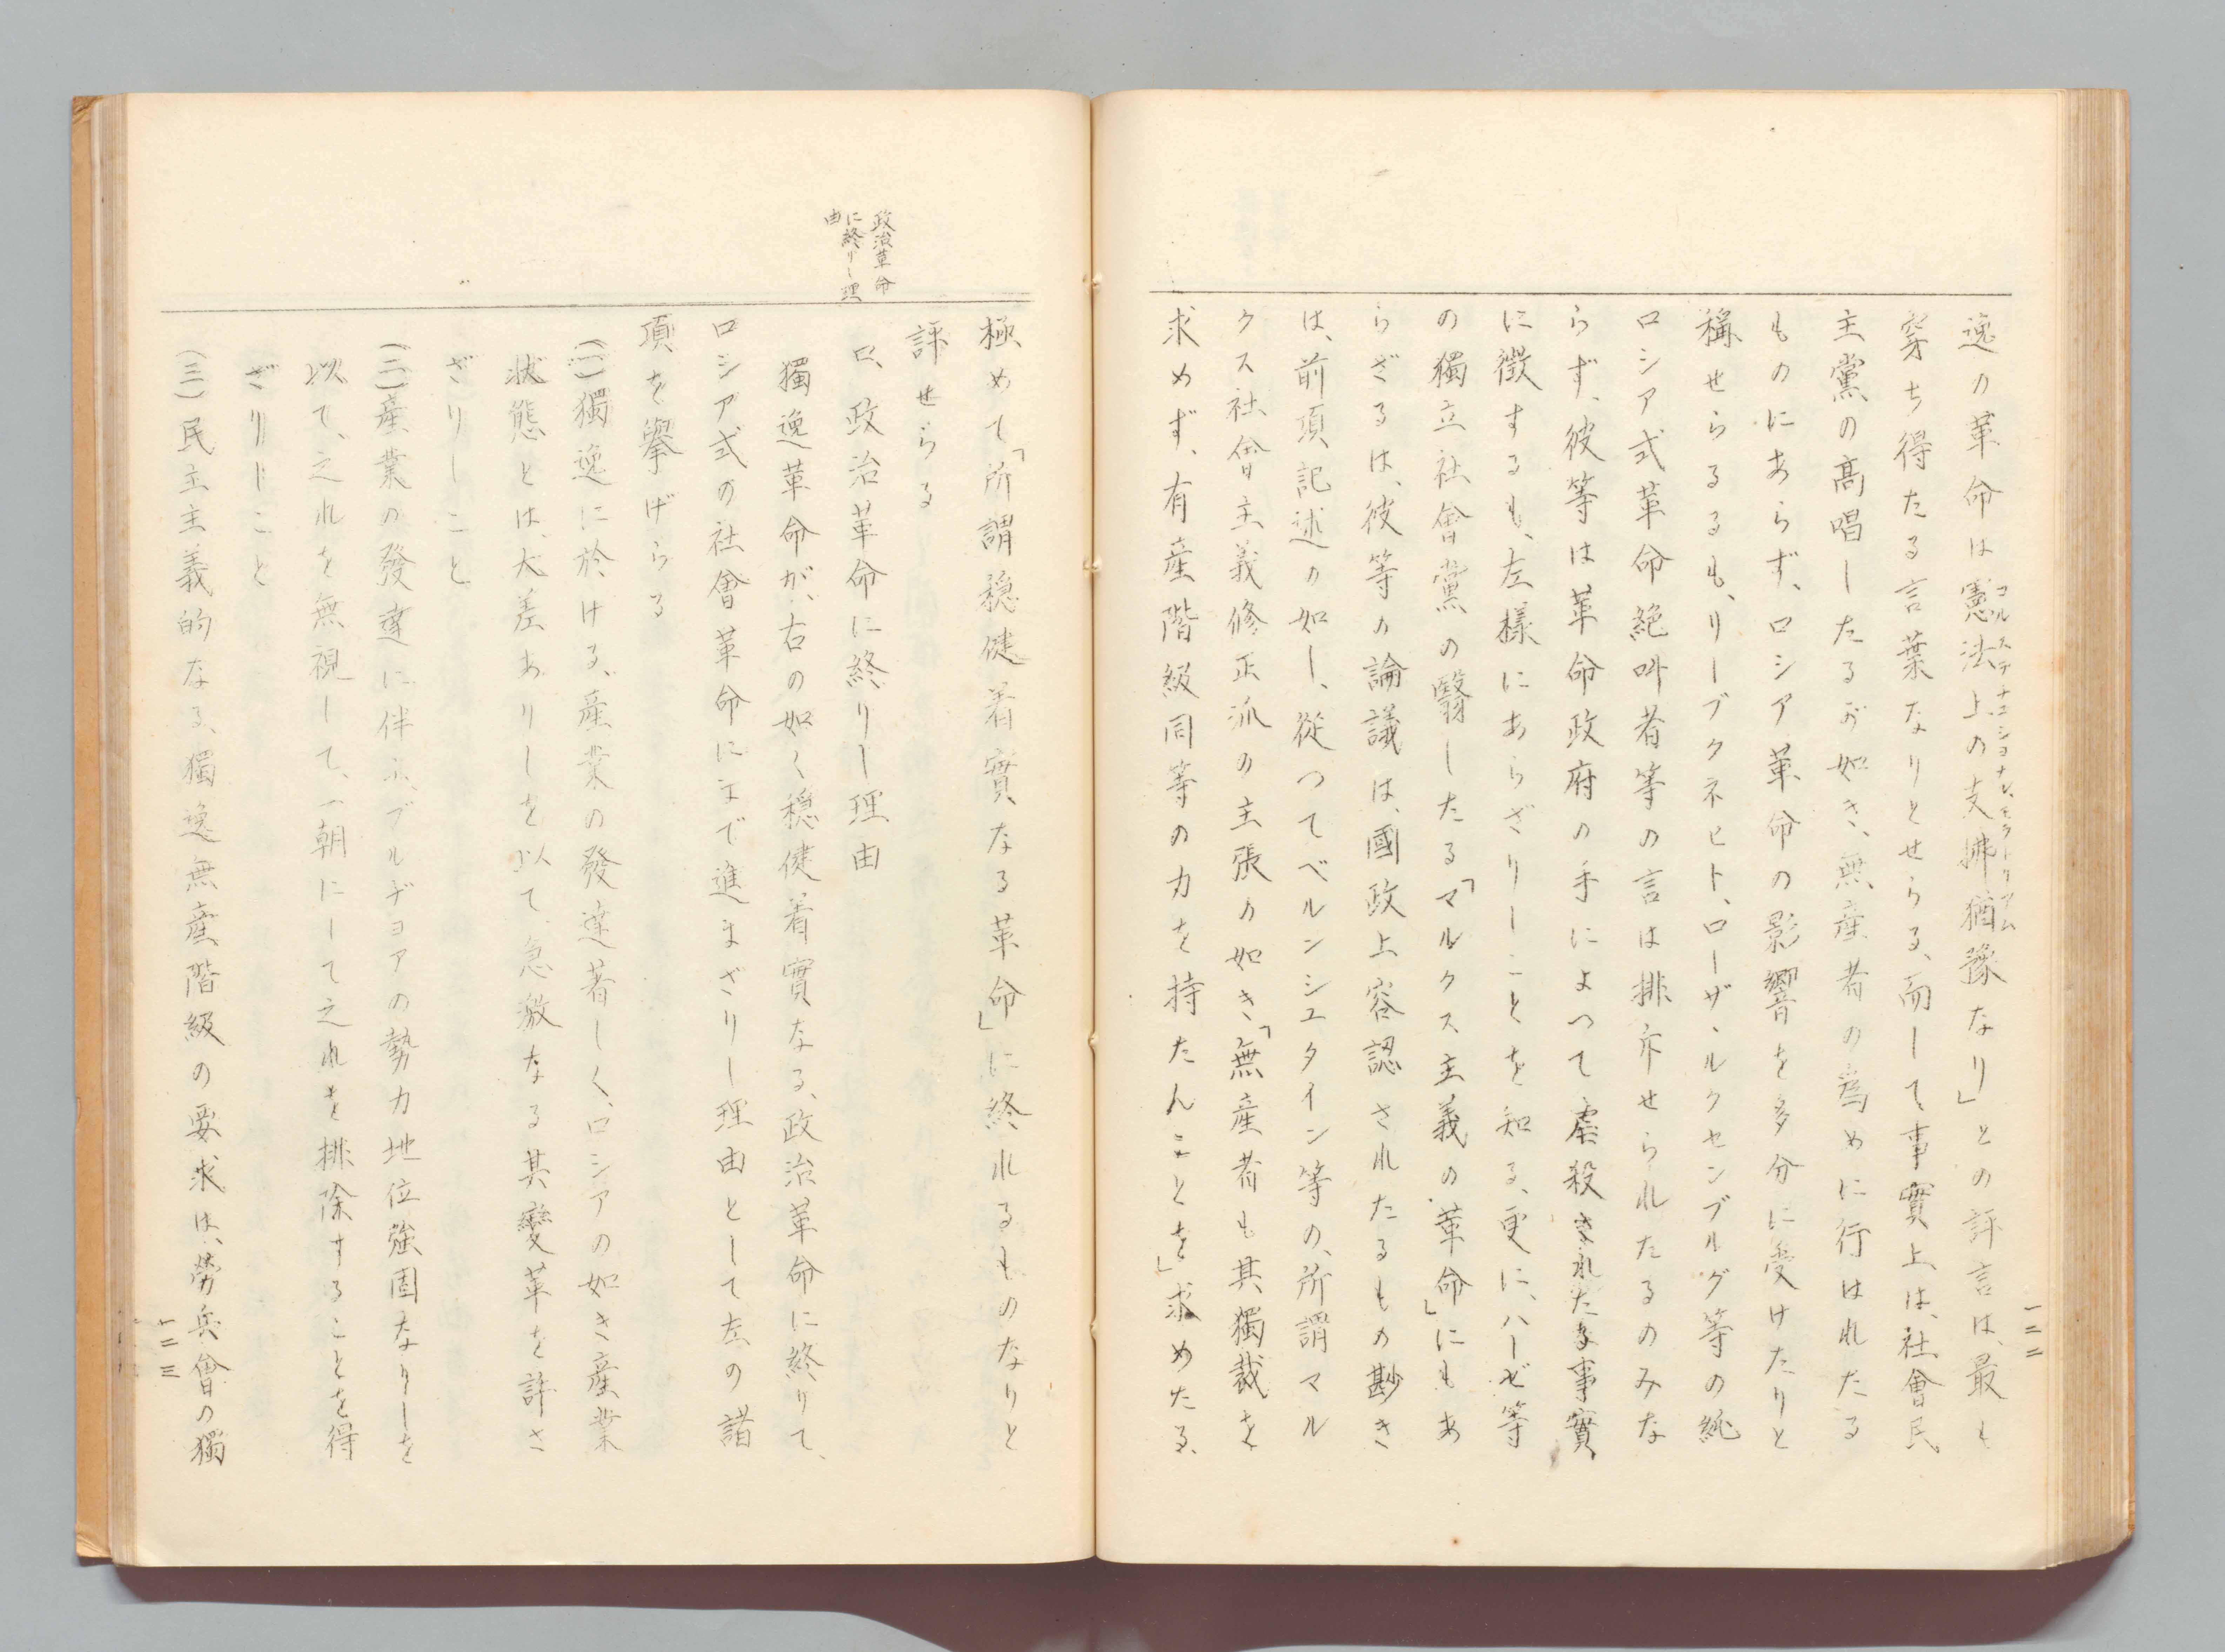 逸の革命は憲法上の支拂猶豫なり」との評言は、最も
穿ち得たる言葉なりとせらる、而して事實上は、社會民
主黨の高唱したるが如き、無産者の爲めに行はれたる
ものにあらず、ロシア革命の影響を多分に受けたりと
稱せらるるも、リーブクネヒト、ローザ・ルクセンブルグ等の純
ロシア式革命絶叫者等の言は排斥せられたるのみな
らず、彼等は革命政府の手によつて虐殺されたる事實
に徴するも、左樣にあらざりしことを知る、更に、ハーゼ等
の獨立社會黨の翳したる「マルクス主義の革命」にもあ
らざるは、彼等の論議は、國政上容認されたるもの尠き
は、前頂記述の如し、從つてベルンシュタイン等の、所謂マル
クス社會主義修正派の主張の如き「無産者も其獨裁を
求めず、有産階級同等の力を持たんことを」求めたる、
一二二
政治革命
に終りし理
由
極めて「所謂穩健着實なる革命」に終れるものなりと
評せらる
ロ、政治革命に終りし理由
獨逸革命が、右の如く穩健着實なる、政治革命に終りて、
ロシア式の社會革命にまで進まざりし理由として左の諸
項を擧げらる
(一)獨逸に於ける、産業の發達著しく、ロシアの如き産業
状態とは、大差ありしを以て、急激なる其變革を許さ
ざりしこと
(二)産業の發達に伴ふ、ブルヂョアの勢力地位強固なりしを
以て、之れを無視して、一朝にして之れを排除することを得
ざりしこと
(三)民主主義的なる、獨逸無産階級の要求は、勞兵會の獨
一二三